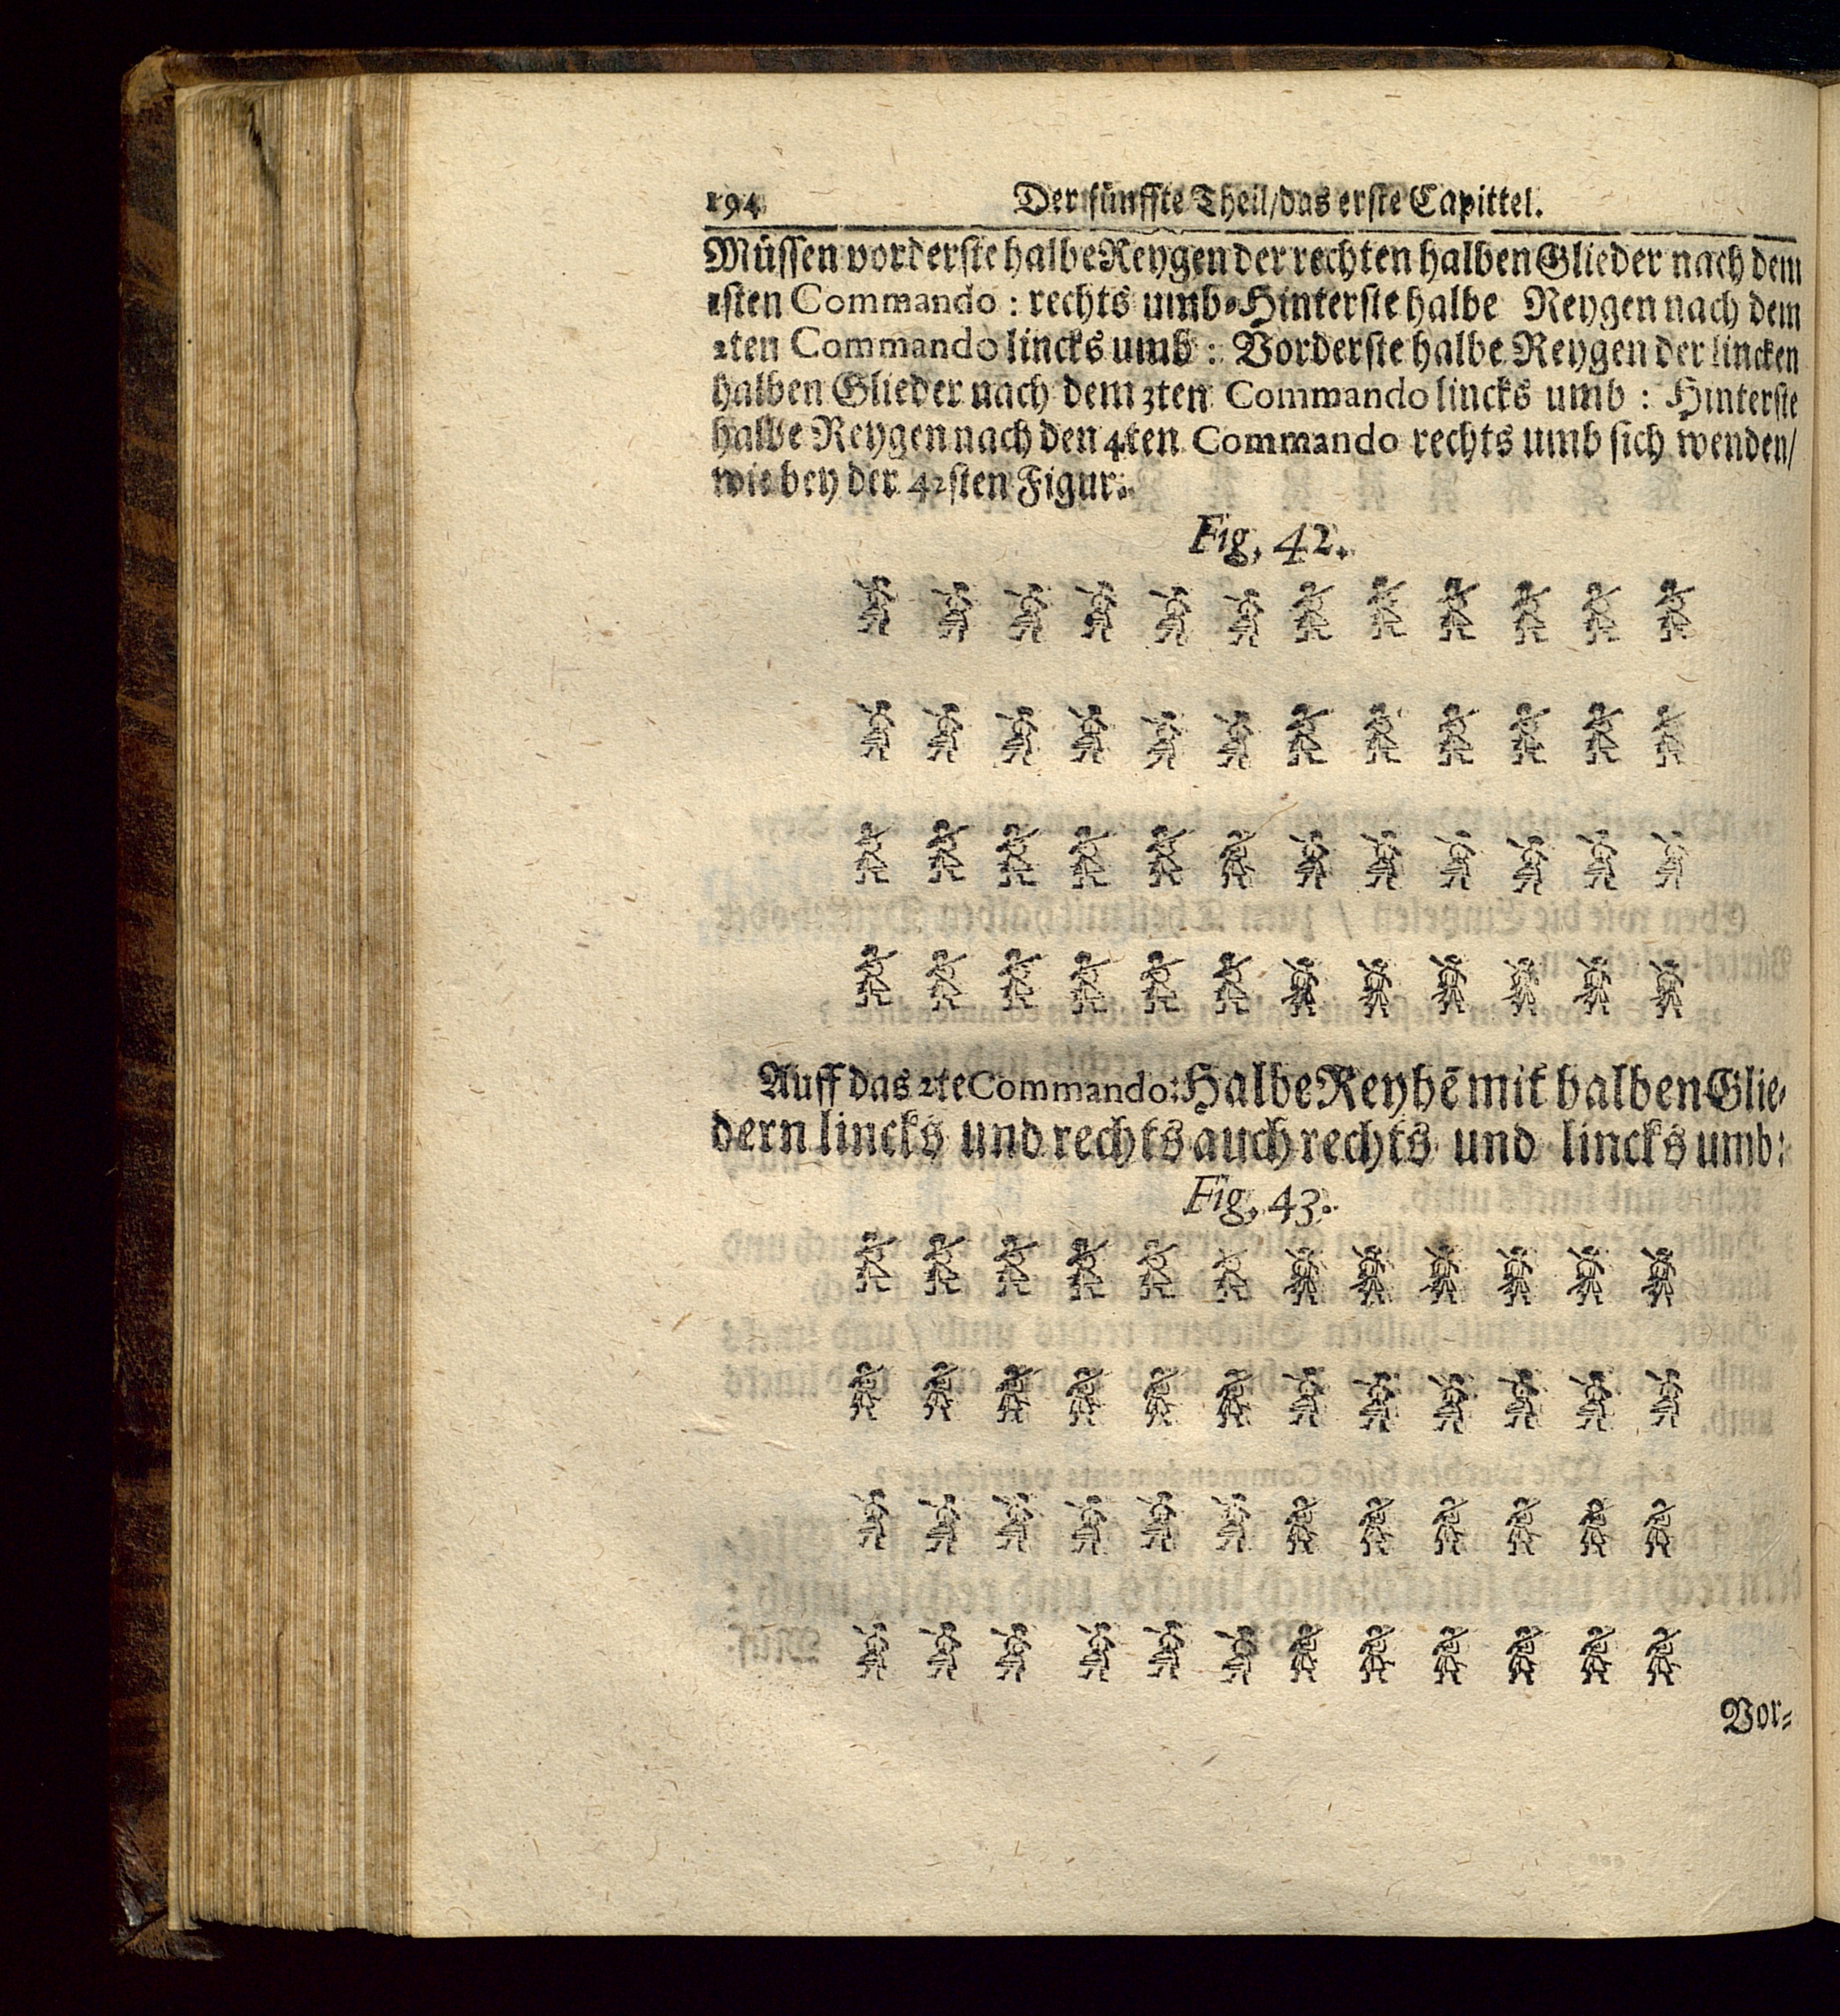 194 Der fünffte Theil/das erste Capittel.
Müssen vorderste halbe Reygen der rechten halben Glieder nach dem
1sten Commando : rechts umb-Hinterste halbe Reygen nach dem
2ten Commando lincks umb : Vorderste halbe Reygen der lincken
halben Glieder nach dem 3ten Commando lincks umb : Hinterste
halbe Reygen nach den 4ten Commando rechts umb sich wenden/
wie bey der 42sten Figur.
Fig. 42.
Auff das 2te Commando: Halbe Reyhē mit halben Glie-
dern lincks und rechts auch rechts und lincks umb:
Fig. 43.
Vor-